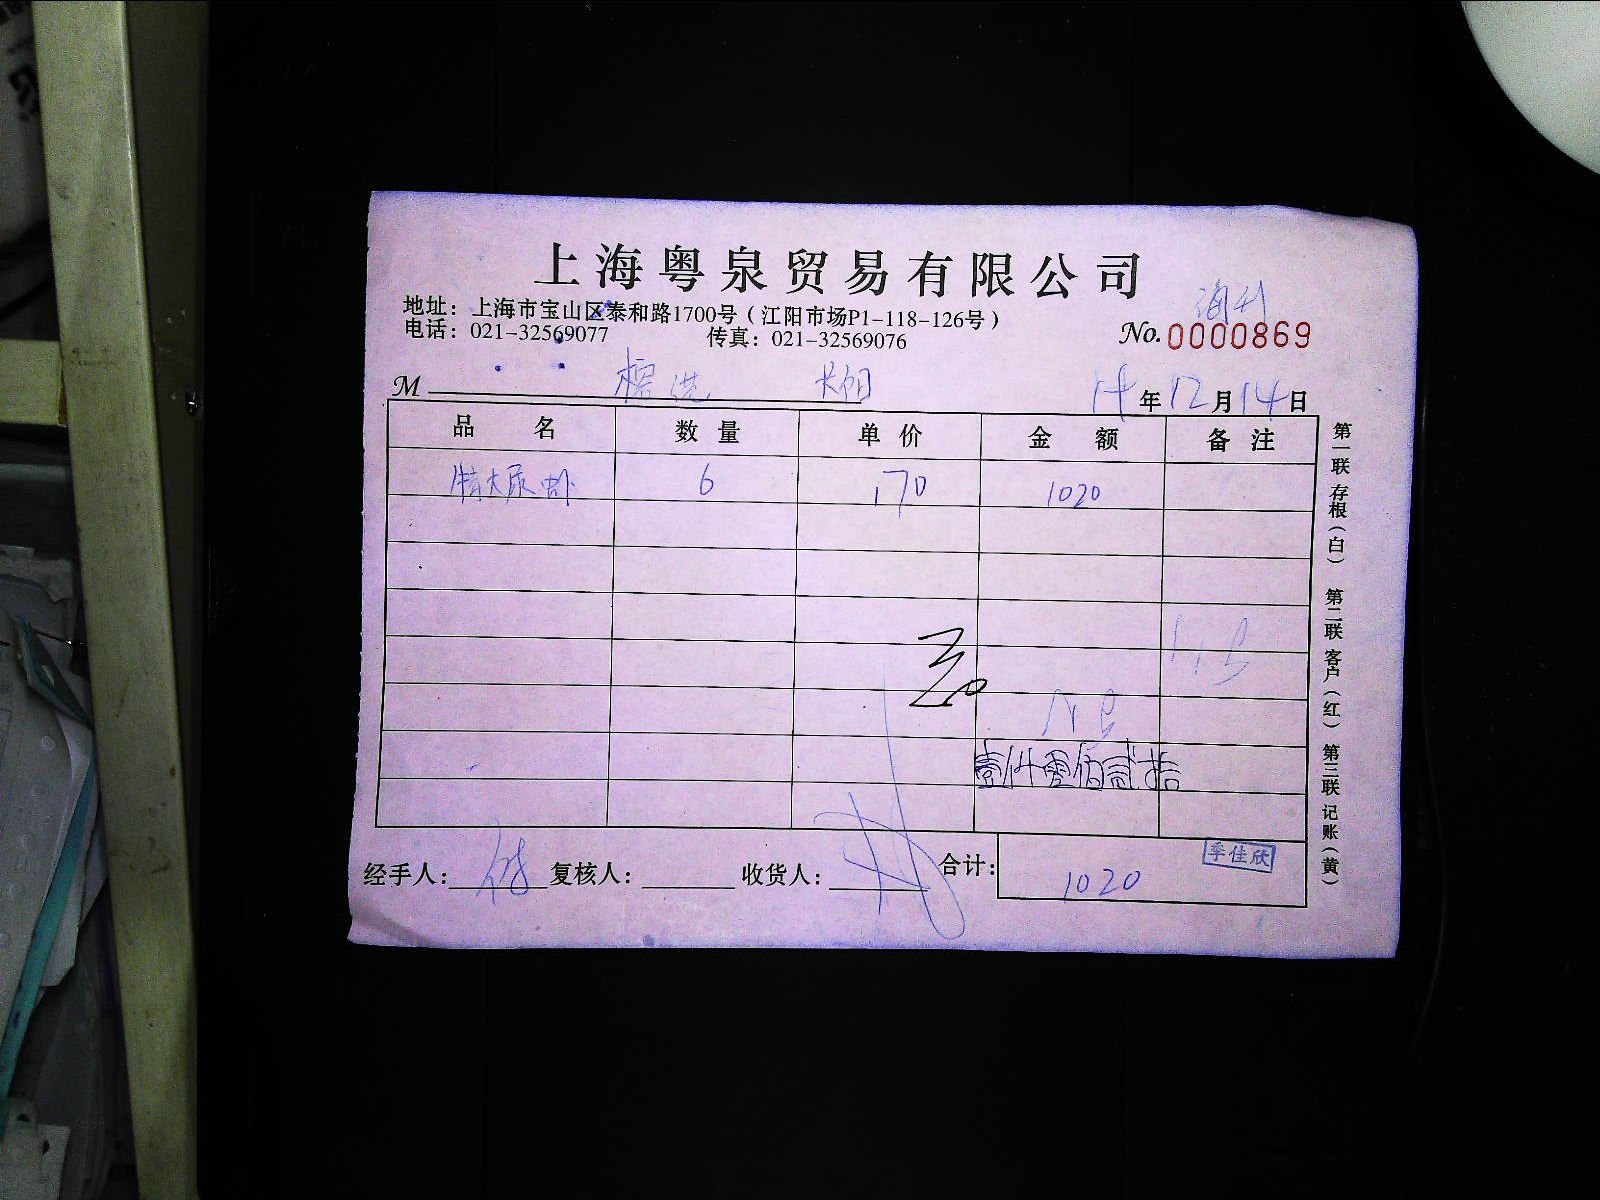 上海粤泉贸易有限公司
地址：上海市宝山区泰和路1700号（江阳市场P1-118-126号）
电话：021-32569077 传真：021-32569076
No.0000869
M
14年12月14日
品名 数量 单价 金额 备注
特大尿虾 6 170 1020
壹仟零佰贰拾
经手人： 复核人： 收货人： 合计：1020
季佳欣
第一联 存根（白） 第二联 客户（红） 第三联 记账（黄）